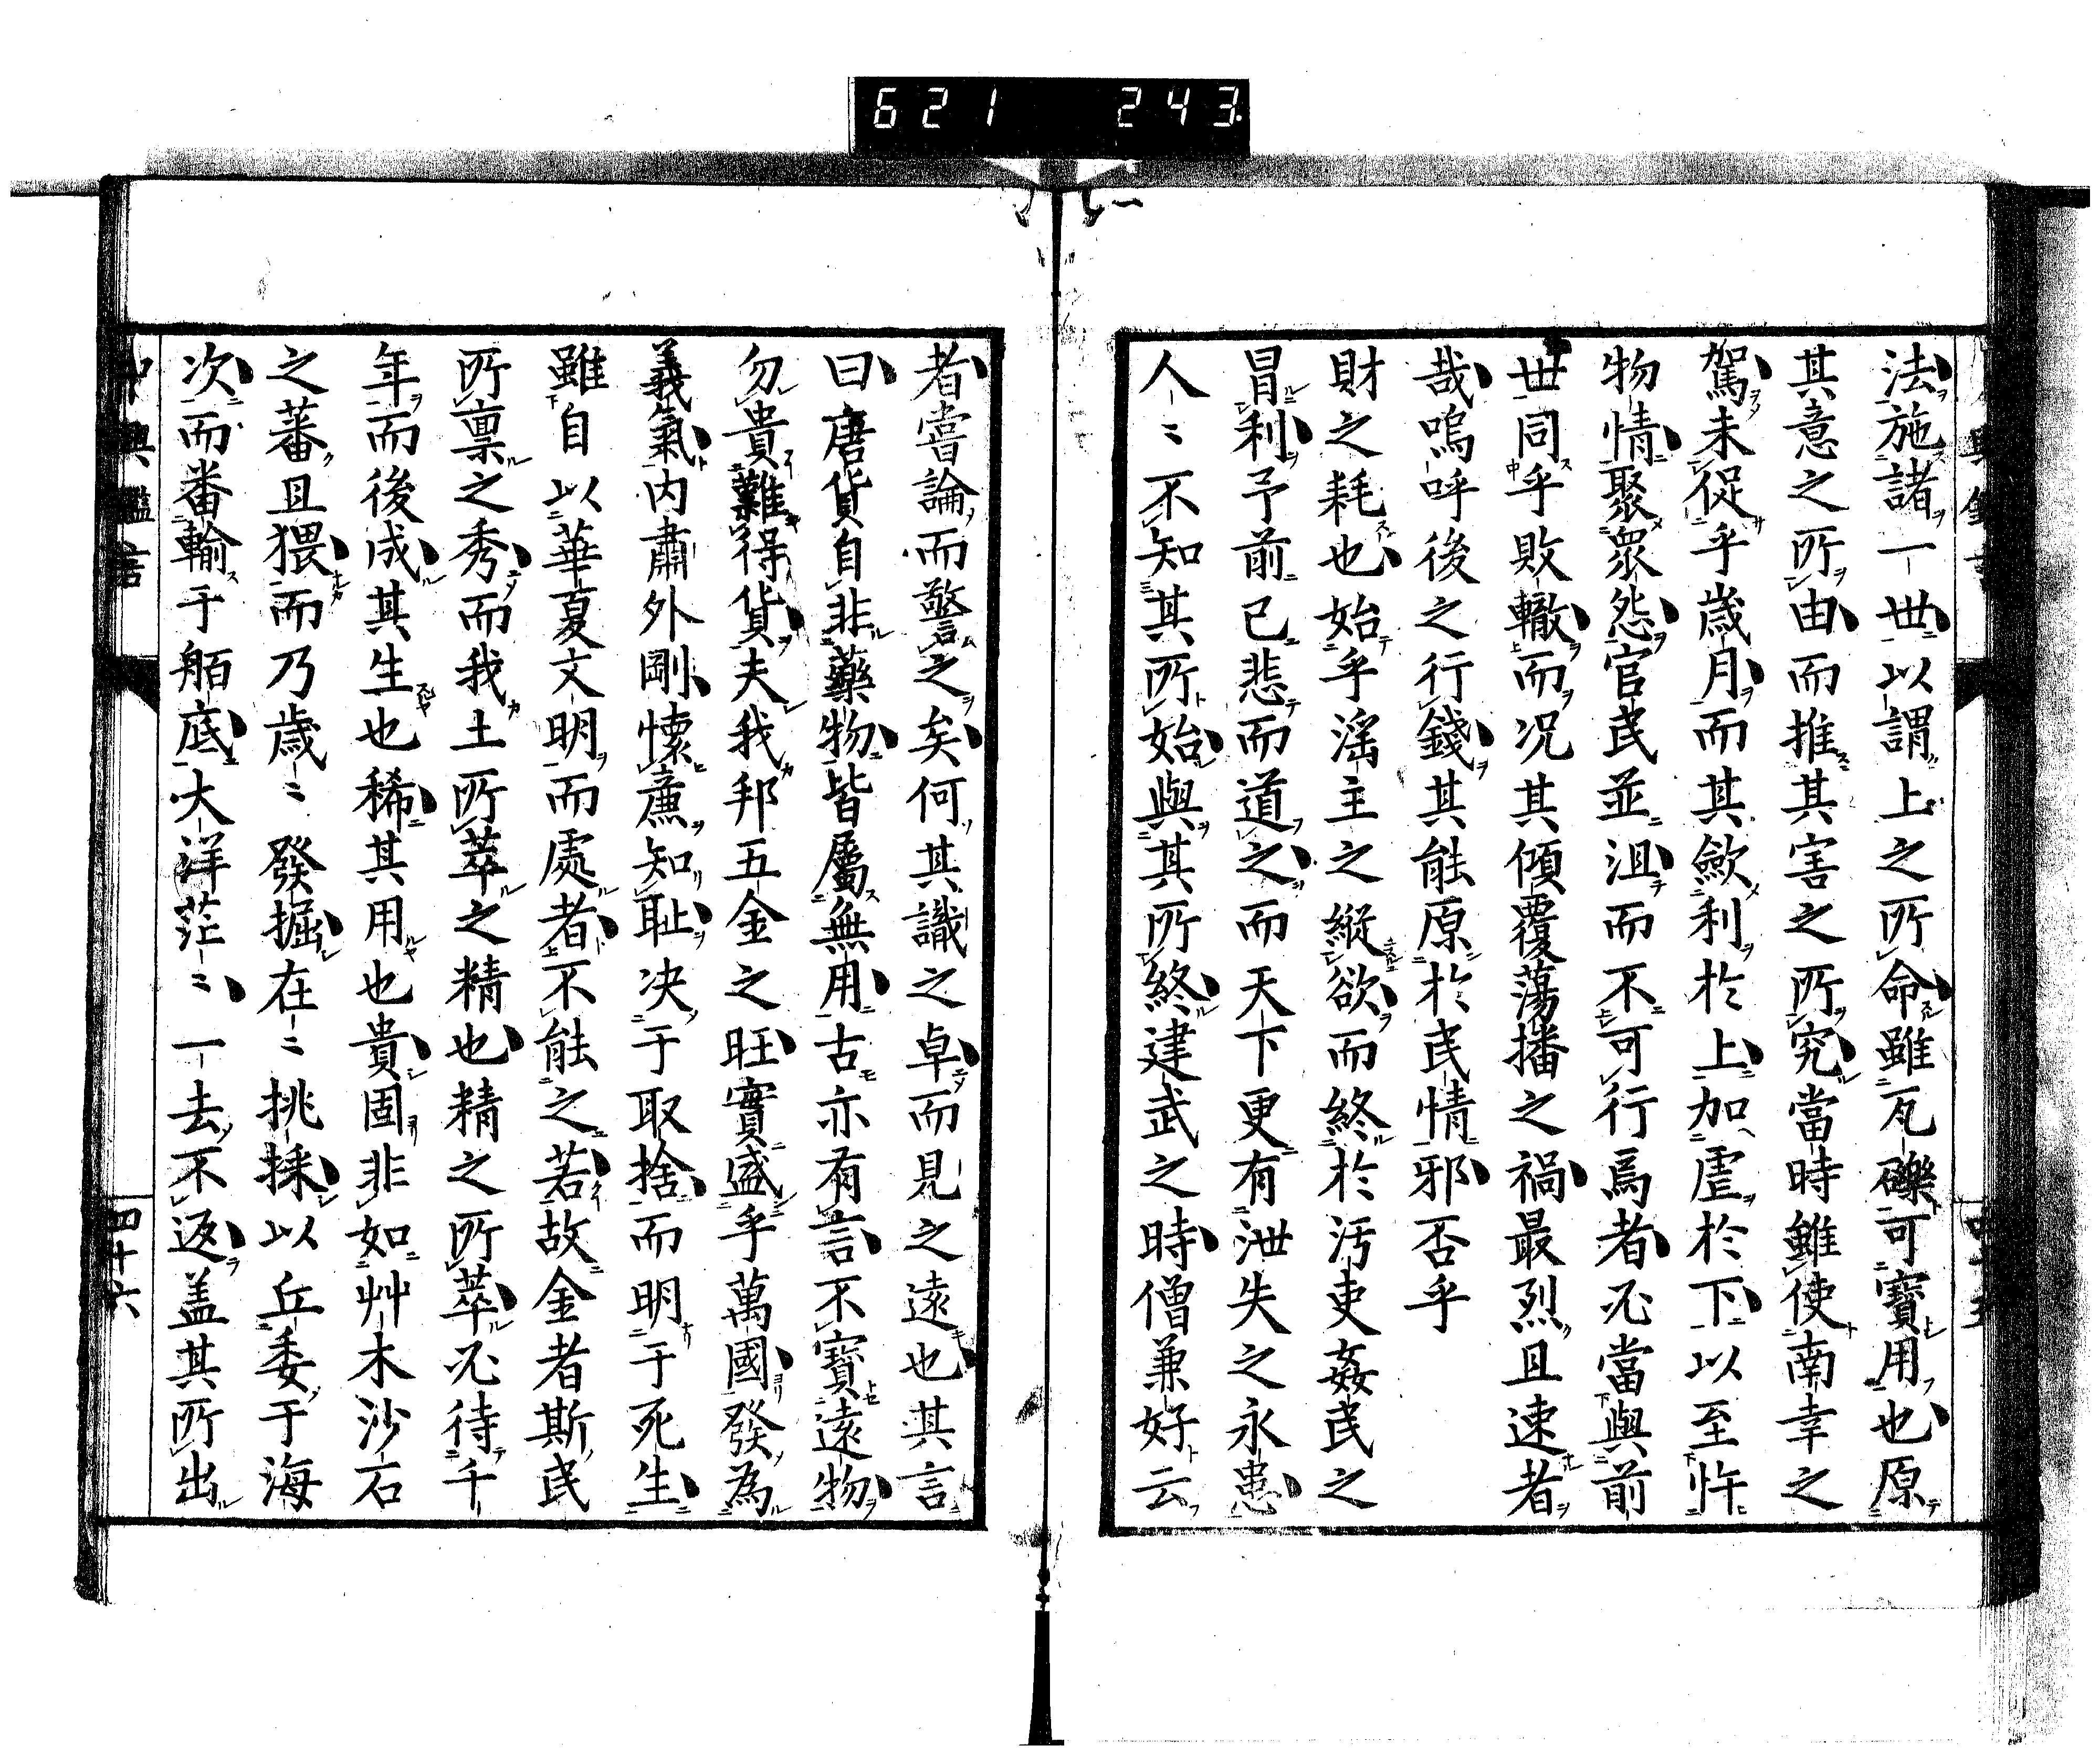 621 243
法施諸一世以謂上之所命雖瓦礫可寶用也原
其意之所由而推其害之所究當時雖使南幸之
駕未促乎歲月而其歛利於上加虐於下以至忤
物情聚眾怨官民並沮而不可行焉者必當與前
世同乎敗轍而况其傾覆蕩播之禍最烈且速者
哉嗚呼後之行錢其能原於民情邪否乎
財之耗也始乎滛主之縱欲而終於汚吏姦民之
冒利予前已悲而道之而天下更有泄失之永患
人〻不知其所始與其所終建武之時僧兼好云
者嘗論而警之矣何其識之卓而見之遠也其言
曰唐貨自非藥物皆屬無用古亦有言不寶遠物
勿貴難得貨夫我邦五金之旺實盛乎萬國發為
義氣内肅外剛懷亷知耻决于取捨而明于死生
雖自以華夏文明而處者不能之若故金者斯民
所禀之秀而我土所萃之精也精之所萃必待千
年而後成其生也稀其用也貴固非如艸木沙石
之蕃且猥而乃歲〻發掘在〻挑採以丘委于海
次而番輸于舶底大洋茫〻一去不返盖其所出
中興鑑言
四十六